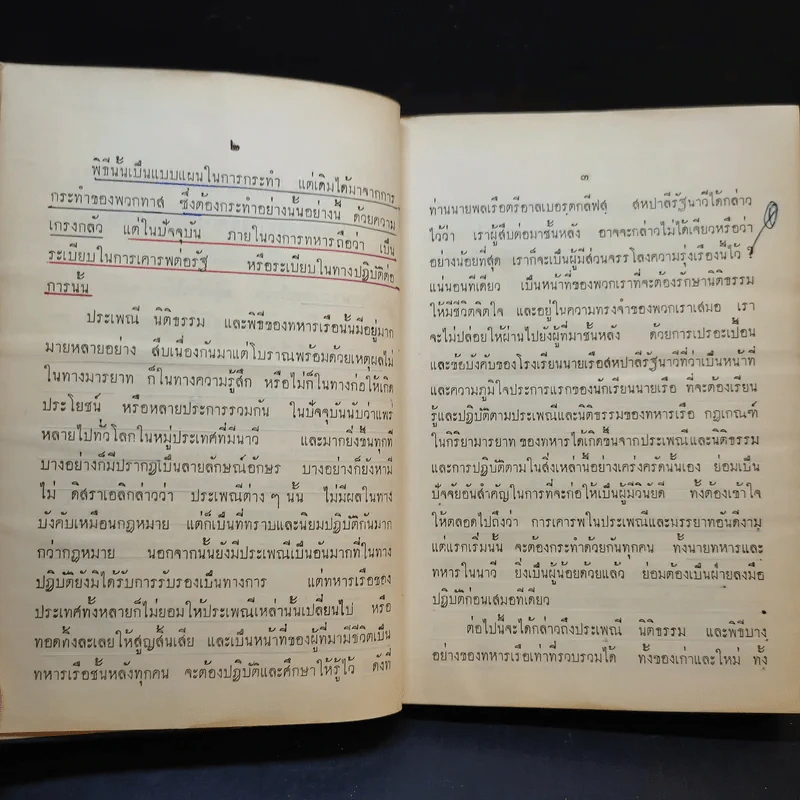 ๒
พิธีนั้นเป็นแบบแผนในการกระทำ แต่เดิมได้มาจากการ
กระทำของพวกทาส ซึ่งต้องกระทำอย่างนั้นอย่างนี้ ด้วยความ
เกรงกลัว แต่ในปัจจุบัน ภายในวงการทหารถือว่า เป็น
ระเบียบในการเคารพต่อรัฐ หรือระเบียบในทางปฏิบัติต่อ
การนั้น
ประเพณี นิติธรรม และพิธีของทหารเรือนั้นมีอยู่มาก
มายหลายอย่าง สืบเนื่องกันมาแต่โบราณพร้อมด้วยเหตุผลไม่
ในทางมารยาท ก็ในทางความรู้สึก หรือไม่ก็ในทางก่อให้เกิด
ประโยชน์ หรือหลายประการรวมกัน ในปัจจุบันนับว่าแพร่
หลายไปทั่วโลกในหมู่ประเทศที่มีนาวี และมากยิ่งขึ้นทุกที
บางอย่างก็มีปรากฏเป็นลายลักษณ์อักษร บางอย่างก็ยังหามี
ไม่ ดิสราเอลิกล่าวว่า ประเพณีต่าง ๆ นั้น ไม่มีผลในทาง
บังคับเหมือนกฎหมาย แต่ก็เป็นที่ทราบและนิยมปฏิบัติกันมาก
กว่ากฎหมาย นอกจากนั้นยังมีประเพณีเป็นอันมากที่ในทาง
ปฏิบัติยังมิได้รับการรับรองเป็นทางการ แต่ทหารเรือของ
ประเทศทั้งหลายก็ไม่ยอมให้ประเพณีเหล่านั้นเปลี่ยนไป หรือ
ทอดทิ้งละเลยให้สูญสิ้นเสีย และเป็นหน้าที่ของผู้ที่มามีชีวิตเป็น
ทหารเรือชั้นหลังทุกคน จะต้องปฏิบัติและศึกษาให้รู้ไว้ ดังที่
๓
ท่านนายพลเรือตรีอาลเบอรตกลีฟส์ สหปาลีรัฐนาวีได้กล่าว
ไว้ว่า เราผู้สืบต่อมาชั้นหลัง อาจจะกล่าวไม่ได้เจียวหรือว่า
อย่างน้อยที่สุด เราก็จะเป็นผู้มีส่วนจรรโลงความรุ่งเรืองนี้ไว้ ?
แน่นอนทีเดียว เป็นหน้าที่ของพวกเราที่จะต้องรักษานิติธรรม
ให้มีชีวิตจิตใจ และอยู่ในความทรงจำของพวกเราเสมอ เรา
จะไม่ปล่อยให้ผ่านไปยังผู้ที่มาชั้นหลัง ด้วยการเปรอะเปื้อน
และข้อบังคับของโรงเรียนนายเรือสหปาลีรัฐนาวีที่ว่าเป็นหน้าที่
และความภูมิใจประการแรกของนักเรียนนายเรือ ที่จะต้องเรียน
รู้และปฏิบัติตามประเพณีและนิติธรรมของทหารเรือ กฎเกณฑ์
ในกิริยามารยาท ของทหารได้เกิดขึ้นจากประเพณีและนิติธรรม
และการปฏิบัติตามในสิ่งเหล่านี้อย่างเคร่งครัดนั้นเอง ย่อมเป็น
ปัจจัยอันสำคัญในการที่จะก่อให้เป็นผู้มีวินัยดี ทั้งต้องเข้าใจ
ให้ตลอดไปถึงว่า การเคารพในประเพณีและมรรยาทอันดีงาม
แต่แรกเริ่มนั้น จะต้องกระทำด้วยกันทุกคน ทั้งนายทหารและ
ทหารในนาวี ยิ่งเป็นผู้น้อยด้วยแล้ว ย่อมต้องเป็นฝ่ายลงมือ
ปฏิบัติก่อนเสมอทีเดียว
ต่อไปนี้จะได้กล่าวถึงประเพณี นิติธรรม และพิธีบาง
อย่างของทหารเรือเท่าที่รวบรวมได้ ทั้งของเก่าและใหม่ ทั้ง